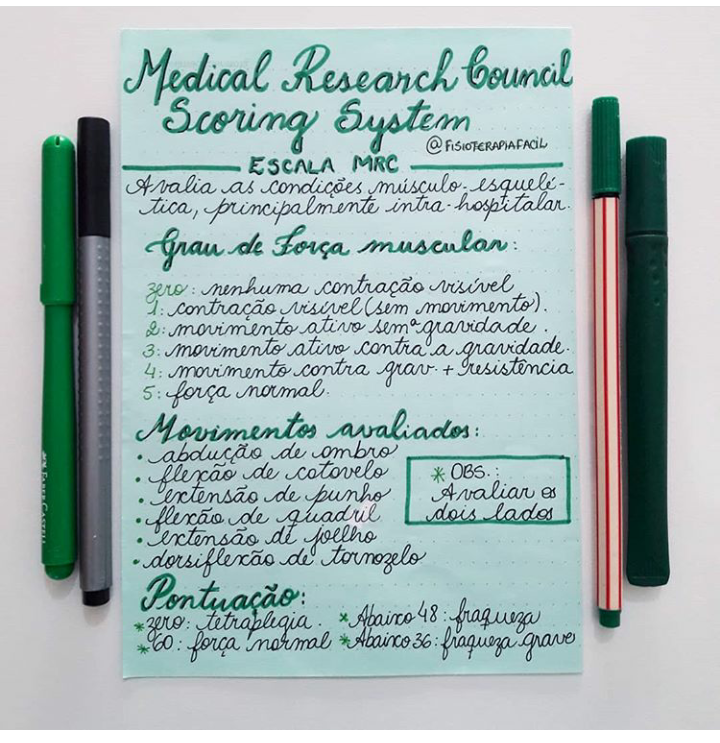 Medical Research Council
Scoring System
@FISIOTERAPIAFACIL
ESCALA MRC
Avalia as condições músculo-esquelé-
tica, principalmente intra-hospitalar.
Grau de Força muscular:
zero: nenhuma contração visível
1: contração visível (sem movimento).
2: movimento ativo sem a gravidade.
3: movimento ativo contra a gravidade.
4: movimento contra grav. + resistência
5: força normal.
Movimentos avaliados:
• abdução de ombro
• flexão de cotovelo
• extensão de punho
• flexão de quadril
• extensão de joelho
• dorsiflexão de tornozelo
* OBS.:
Avaliar os
dois lados
Pontuação:
* zero: tetraplegia. * Abaixo 48: fraqueza
* 60: força normal * Abaixo 36: fraqueza grave
FABER-CASTELL